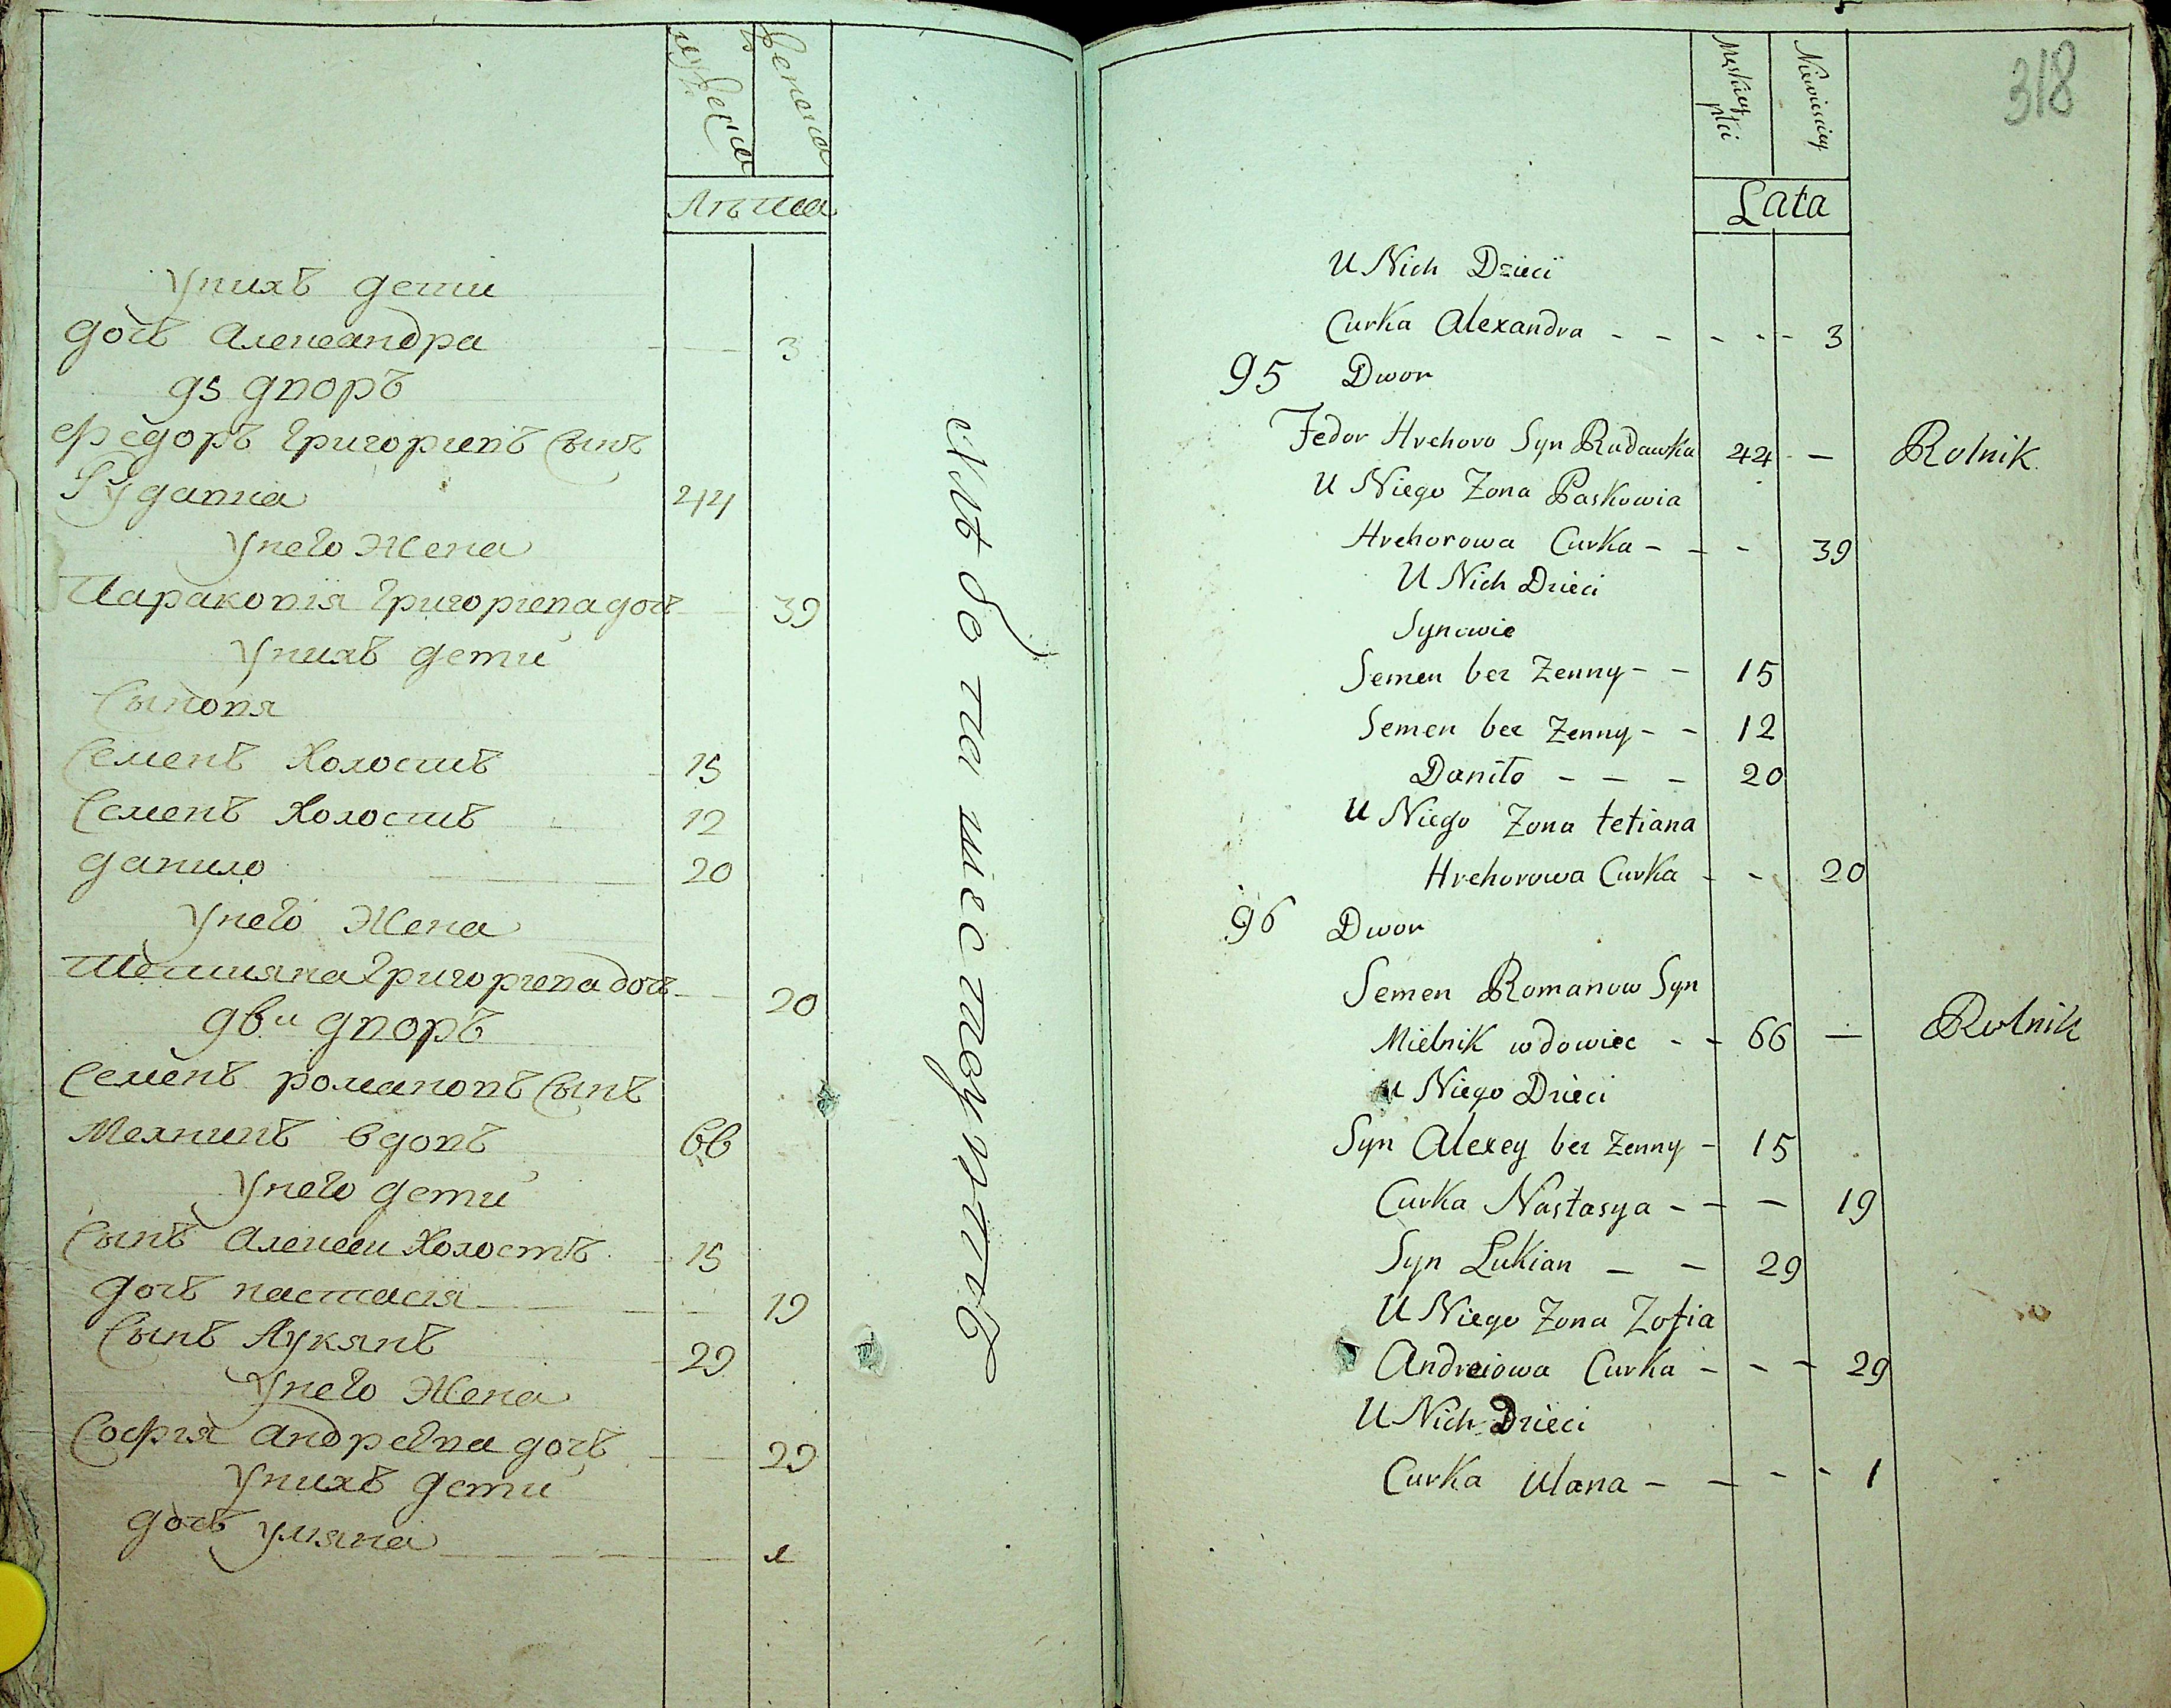 мужеска
женска
Лѣта
У нихъ дети
дочъ Александра 3
95 дворъ
Федоръ Григориевъ Сынъ
Рудавка 44
У него Жена
Параковїя Григорїева дочъ 39
У нихъ дети
Сыновя
Семенъ Холостъ 15
Семенъ Холостъ 12
данило 20
У него Жена
Тетияна Григорїева дочъ 20
96 дворъ
Семенъ романовъ Сынъ
Мелникъ вдовъ 66
У него дети
Сынъ Алексеи Холостъ 15
дочъ настасїя 19
Сынъ Лукянъ 29
У него Жена
Софїя Андреева дочъ 29
У нихъ дети
дочъ уляна 1
318
Męskiey płci
Niewieściey
Lata
U Nich Dzieci
Curka Alexandra - - - - - 3
95 Dwor
Fedor Hrehoro Syn Rudawka 44 — Rolnik
U Niego Zona Paskowia
Hrehorowa Curka - - - 39
U Nich Dzieci
Synowie
Semen bez Zenny - - 15
Semen bez Zenny - - 12
Daniło - - - 20
U Niego Zona tetiana
Hrehorowa Curka - - 20
96 Dwor
Semen Romanow Syn
Mielnik wdowiec - - 66 — Rolnik
U Niego Dzieci
Syn Alexey bez Zenny - 15
Curka Nastasya - - - 19
Syn Lukian - - 29
U Niego Zona Zofia
Andreiowa Curka - - - 29
U Nich Dzieci
Curka Ulana - - - - 1